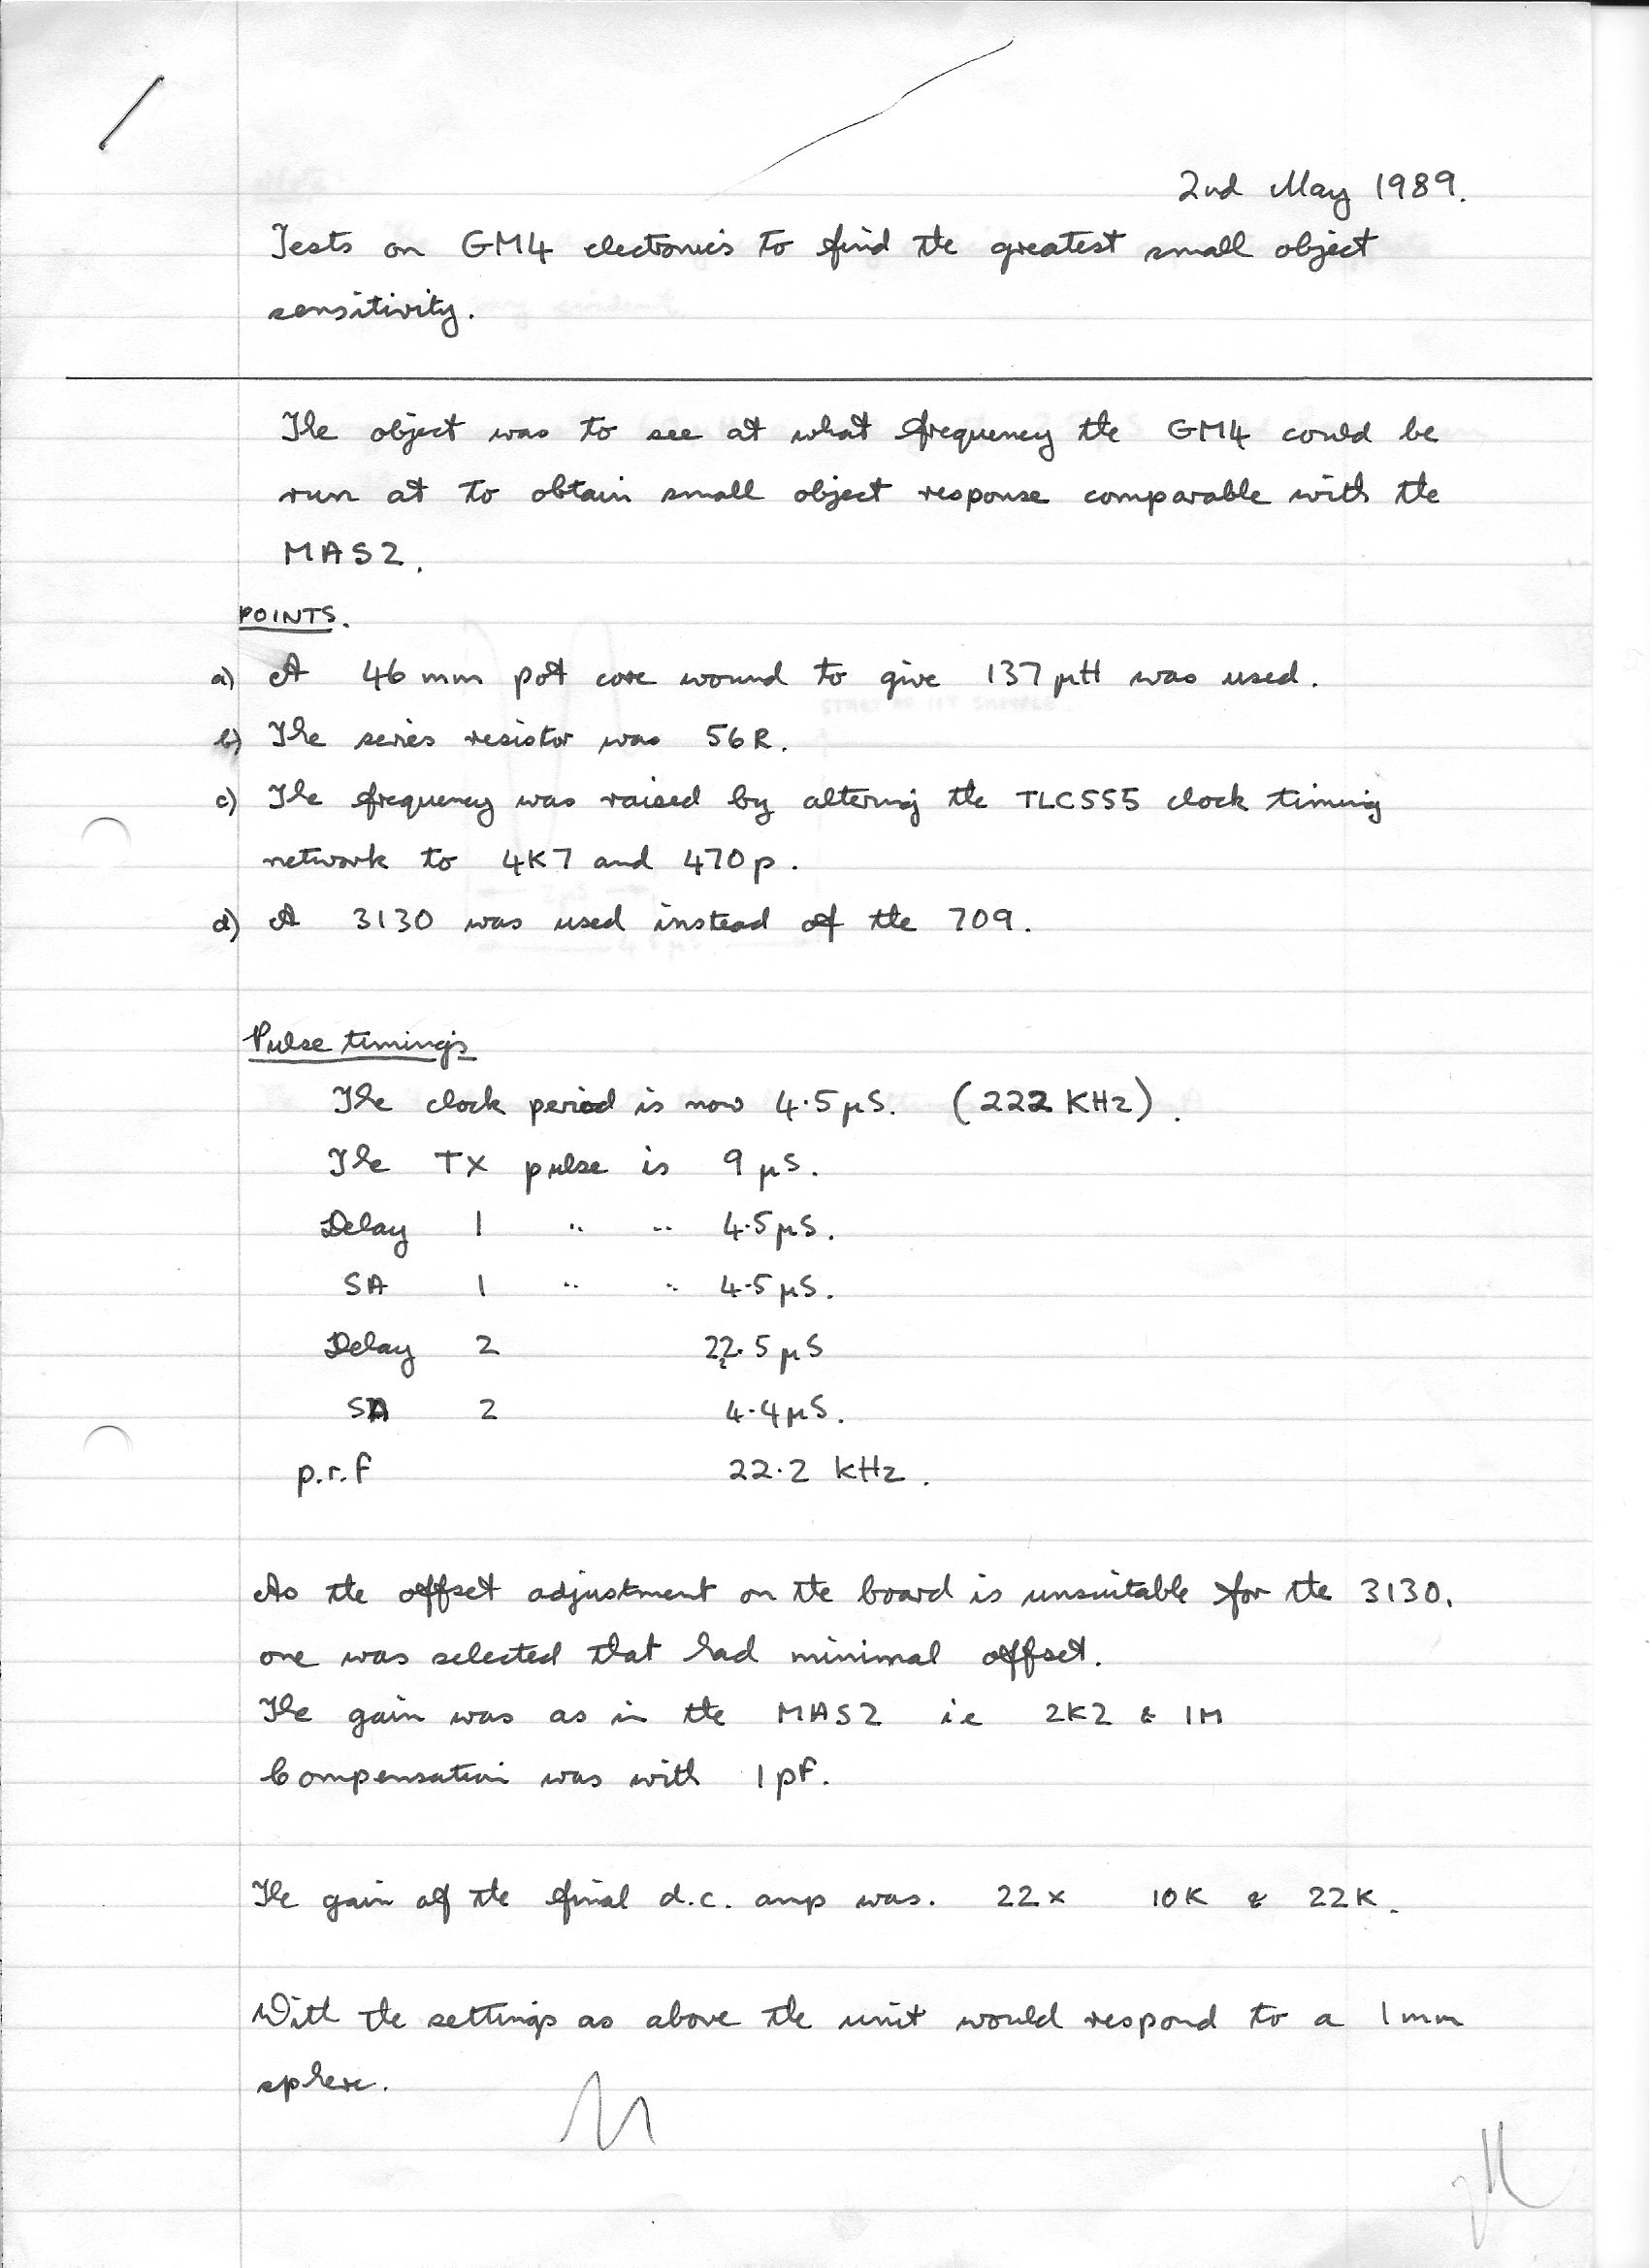 2nd May 1989.
Tests on GM4 electronics to find the greatest small object
sensitivity.
The object was to see at what frequency the GM4 could be
run at to obtain small object response comparable with the
MAS2.
POINTS.
a) A 46 mm pot core wound to give 137 µH was used.
b) The series resistor was 56R.
c) The frequency was raised by altering the TLC555 clock timing
network to 4K7 and 470p.
d) A 3130 was used instead of the 709.
Pulse timings
The clock period is now 4.5µS. (222 KHz).
The TX pulse is 9 µS.
Delay 1 " " 4.5µS.
SA 1 " " 4.5µS.
Delay 2 22.5µS
SA 2 4.4µS.
p.r.f 22.2 kHz.
As the offset adjustment on the board is unsuitable for the 3130,
one was selected that had minimal offset.
The gain was as in the MAS2 ie 2K2 & 1M
Compensation was with 1pF.
The gain of the final d.c. amp was. 22x 10K & 22K.
With the settings as above the unit would respond to a 1mm
sphere.